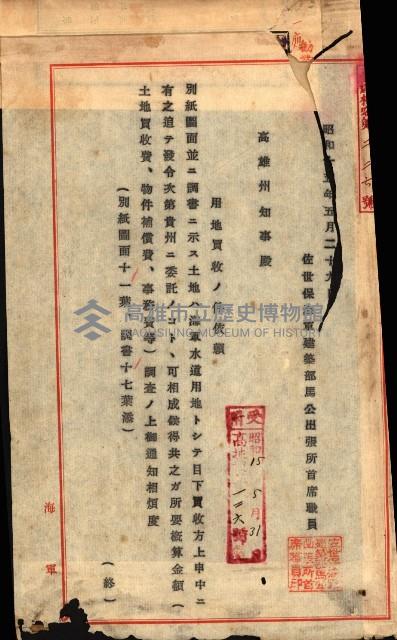 昭和十五年五月二十九日
佐世保海軍建築部馬公出張所首席職員
高雄州知事殿
用地買收ノ件依頼
別紙圖面並ニ調書ニ示ス土地ハ海軍水道用地トシテ目下買收方上申中ニ
有之追テ發令次第貴州ニ委託ノコトヽ可相成候得共之ガ所要概算金額(
土地買收費、物件補償費、事務費等)調査ノ上御通知相煩度
(別紙圖面十一葉、調書十七葉添)
(終)
海軍
受付
昭和15 5月31
高雄市立歷史博物館
KAOHSIUNG MUSEUM OF HISTORY